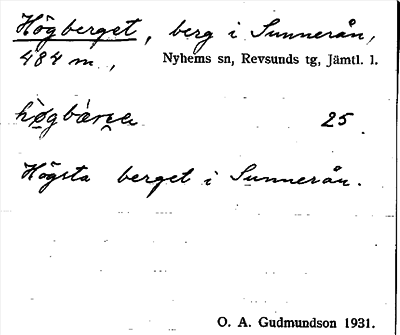 Högberget, berg i Sunnerån,
484 m., Nyhems sn, Revsunds tg, Jämtl. l.
25
Högsta berget i Sunnerån.
O. A. Gudmundson 1931.